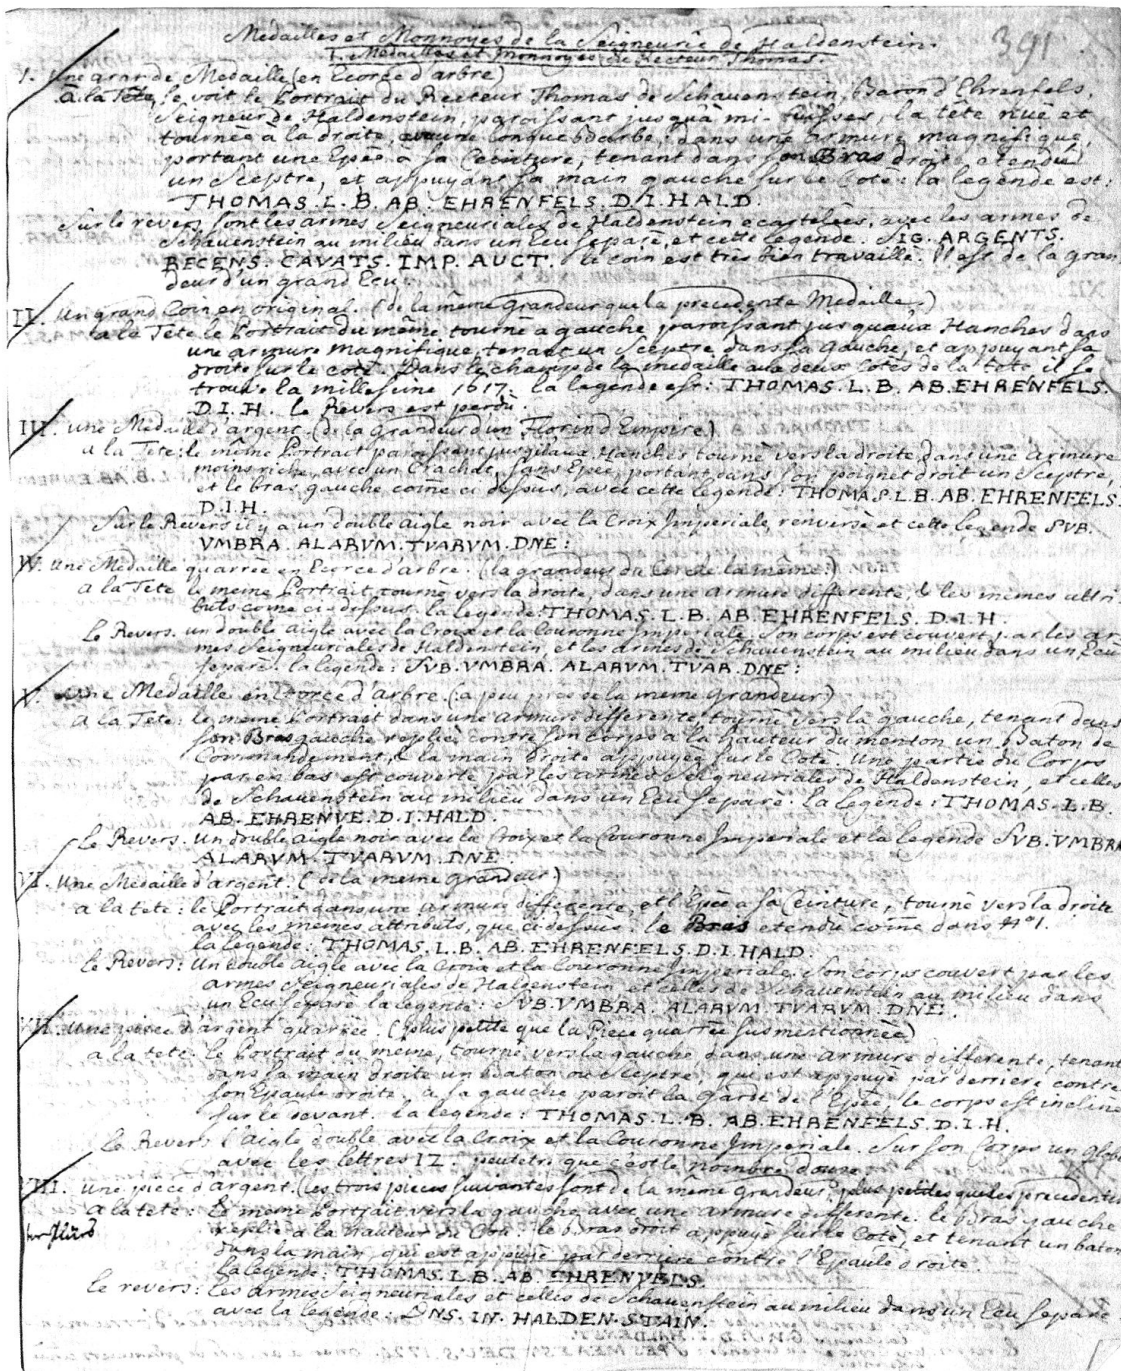 Medailles et Monnoyes de la Seigneurie de Haldenstein.
391
I. Medailles et Monnoyes du Recteur Thomas.
I. une grande Medaille (en Ecorce d'arbre)
à la Tête, se voit le Portrait du Recteur Thomas de Schauenstein, Baron d'Ehrenfels,
Seigneur de Haldenstein, paroissant jusqu'à mi-cuisses, la tête nüe et
tournée à la droite, avec une longue barbe: dans une armure magnifique,
portant une Epée à sa Ceinture, tenant dans son Bras droit etendu
un Sceptre, et appuyant sa main gauche sur le Coté: la legende est:
THOMAS. L. B. AB. EHRENFELS. D. I. HALD.
Sur le revers sont les armes Seigneuriales de Haldenstein ecartelées, avec les armes de
Schauenstein au milieu dans un Ecu separé, et cette legende. SIG. ARGENTS.
RECENS. CAVATS. IMP. AUCT. le coin est très bien travaillé. Il est de la gran
deur d'un grand Ecu.
II. Un grand Coin en original. (de la même Grandeur que la precedente Medaille.)
a la Tete le Portrait du même tourné a gauche paroissant jusqu'aux Hanches dans
une armure magnifique, tenant un Sceptre dans la Gauche, et appuyant sa
droite sur le coté. Dans le champ de la medaille aux deux Cotés de la tete il se
trouve la millesime 1617. la legende est: THOMAS. L. B. AB. EHRENFELS.
D. I. H. le Revers est perdu.
III. une Medaille d'argent. (de la Grandeur d'un Florin d'Empire.)
a la Tete: le même Portrait paroissant jusqu'aux Hanches tourné vers la droite, dans une armure
moins riche, avec un Crachat, sans Epée, portant dans son poignet droit un Sceptre,
et le bras gauche come ci dessus, avec cette legende: THOMAS. L. B. AB. EHRENFELS.
D. I. H.
Sur le Revers il y a un double aigle noir avec la Croix Imperiale, renversé et cette legende SUB.
VMBRA. ALARVM. TVARVM. DNE:
IV. une Medaille quarrée en Ecorce d'arbre. (la grandeur du Cercle la même.)
a la Tete le meme Portrait tourné vers la droite, dans une armure differente, & les mêmes attri
buts come ci-dessus. la legende: THOMAS. L. B. AB. EHRENFELS. D. I. H.
Le Revers. un double aigle avec la Croix et la Couronne Imperiale. Son corps est couvert par les ar
mes Seigneuriales de Haldenstein, et les armes de Schauenstein au milieu dans un Ecu
separé. la legende: SVB. VMBRA. ALARVM. TVAR. DNE:
V. une Medaille en Ecorce d'arbre. (a peu près de la meme Grandeur)
a la Tete: le meme Portrait dans une armure differente, tourné vers la gauche, tenant dans
son Bras gauche replié contre son corps a la hauteur du menton un Baton de
Commandement, & la main droite appuyée sur le Coté. Une partie du Corps
par en bas est couverte par les armes Seigneuriales de Haldenstein, et celles
de Schauenstein au milieu dans un Ecu separé. la Legende: THOMAS. L. B.
AB. EHRENVE. D. I. HALD.
Le Revers. un double aigle noir avec la Croix et la Couronne Imperiale et la legende SVB. VMBRA
ALARVM. TVARVM. DNE.
VI. une Medaille d'argent. (de la meme Grandeur)
a la tete: le Portrait dans une armure differente, et l'Epée a sa Ceinture, tourné vers la droite
avec les mêmes attributs, que ci-dessus: le Bras etendu come dans N° 1.
la legende: THOMAS. L. B. AB. EHRENFELS. D. I. HALD.
le Revers: un double aigle avec la Croix et la Couronne Imperiale. Son corps couvert par les
armes Seigneuriales de Haldenstein, et celles de Schauenstein au milieu dans
un Ecu separé la legende: SVB. VMBRA. ALARVM. TVARVM. DNE.
VII. une piece d'argent quarrée. (plus petite que la Piece quarrée susmentionnée)
a la tete: le Portrait du meme, tourné vers la gauche dans une armure differente, tenant
dans sa main droite un Baton ou Sceptre, qui est appuyé par derriere contre
son Epaule droite. a sa gauche paroit la Garde de l'Epée, le corps est incliné
sur le devant. la legende: THOMAS. L. B. AB. EHRENFELS. D. I. H.
Le Revers: l'aigle double avec la Croix et la Couronne Imperiale. Sur son Corps un globe
avec les lettres IZ. peutetre que c'est le nombre douze
VIII. une piece d'argent. (les trois pieces suivantes sont de la même grandeur, plus petites que les precedentes
a la tete: le meme Portrait vers la gauche, avec une armure differente. le Bras gauche
replié a la hauteur du Cou. le bras droit appuyé sur le Coté, et tenant un baton
dans la main, qui est appuyé par derriere contre l'Epaule droite.
la legende: THOMAS. L. B. AB. EHRENVELS.
le revers: les armes Seigneuriales et celles de Schauenstein au milieu dans un Ecu separé
avec la legende: DNS. IN. HALDEN. STAIN.